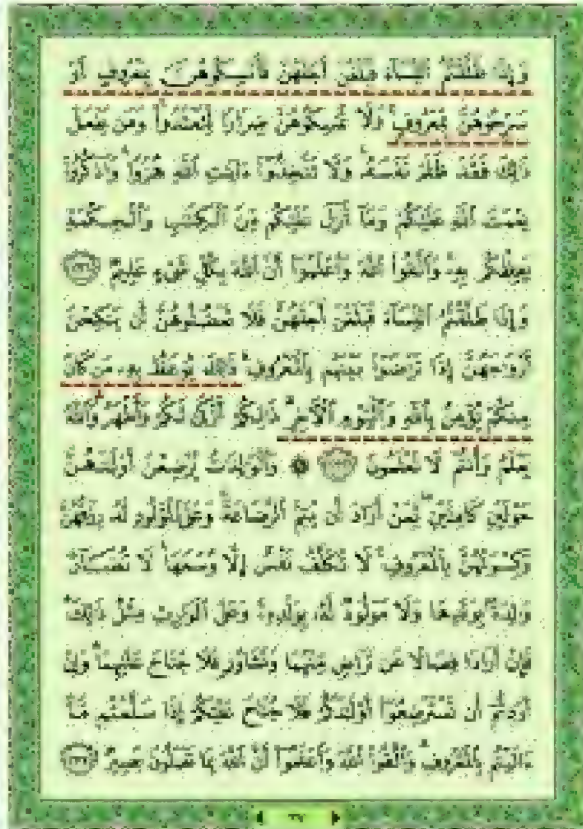 وَإِذَا طَلَّقْتُمُ النِّسَاءَ فَبَلَغْنَ أَجَلَهُنَّ فَأَمْسِكُوهُنَّ بِمَعْرُوفٍ أَوْ
سَرِّحُوهُنَّ بِمَعْرُوفٍ وَلَا تُمْسِكُوهُنَّ ضِرَارًا لِتَعْتَدُوا وَمَنْ يَفْعَلْ
ذَٰلِكَ فَقَدْ ظَلَمَ نَفْسَهُ وَلَا تَتَّخِذُوا آيَاتِ اللَّهِ هُزُوًا وَاذْكُرُوا
نِعْمَتَ اللَّهِ عَلَيْكُمْ وَمَا أَنْزَلَ عَلَيْكُمْ مِنَ الْكِتَابِ وَالْحِكْمَةِ
يَعِظُكُمْ بِهِ وَاتَّقُوا اللَّهَ وَاعْلَمُوا أَنَّ اللَّهَ بِكُلِّ شَيْءٍ عَلِيمٌ ٢٣١
وَإِذَا طَلَّقْتُمُ النِّسَاءَ فَبَلَغْنَ أَجَلَهُنَّ فَلَا تَعْضُلُوهُنَّ أَنْ يَنْكِحْنَ
أَزْوَاجَهُنَّ إِذَا تَرَاضَوْا بَيْنَهُمْ بِالْمَعْرُوفِ ذَٰلِكَ يُوعَظُ بِهِ مَنْ كَانَ
مِنْكُمْ يُؤْمِنُ بِاللَّهِ وَالْيَوْمِ الْآخِرِ ذَٰلِكُمْ أَزْكَىٰ لَكُمْ وَأَطْهَرُ وَاللَّهُ
يَعْلَمُ وَأَنْتُمْ لَا تَعْلَمُونَ ٢٣٢ ۞ وَالْوَالِدَاتُ يُرْضِعْنَ أَوْلَادَهُنَّ
حَوْلَيْنِ كَامِلَيْنِ لِمَنْ أَرَادَ أَنْ يُتِمَّ الرَّضَاعَةَ وَعَلَى الْمَوْلُودِ لَهُ رِزْقُهُنَّ
وَكِسْوَتُهُنَّ بِالْمَعْرُوفِ لَا تُكَلَّفُ نَفْسٌ إِلَّا وُسْعَهَا لَا تُضَارَّ
وَالِدَةٌ بِوَلَدِهَا وَلَا مَوْلُودٌ لَهُ بِوَلَدِهِ وَعَلَى الْوَارِثِ مِثْلُ ذَٰلِكَ
فَإِنْ أَرَادَا فِصَالًا عَنْ تَرَاضٍ مِنْهُمَا وَتَشَاوُرٍ فَلَا جُنَاحَ عَلَيْهِمَا وَإِنْ
أَرَدْتُمْ أَنْ تَسْتَرْضِعُوا أَوْلَادَكُمْ فَلَا جُنَاحَ عَلَيْكُمْ إِذَا سَلَّمْتُمْ مَا
آتَيْتُمْ بِالْمَعْرُوفِ وَاتَّقُوا اللَّهَ وَاعْلَمُوا أَنَّ اللَّهَ بِمَا تَعْمَلُونَ بَصِيرٌ ٢٣٣
٣٧